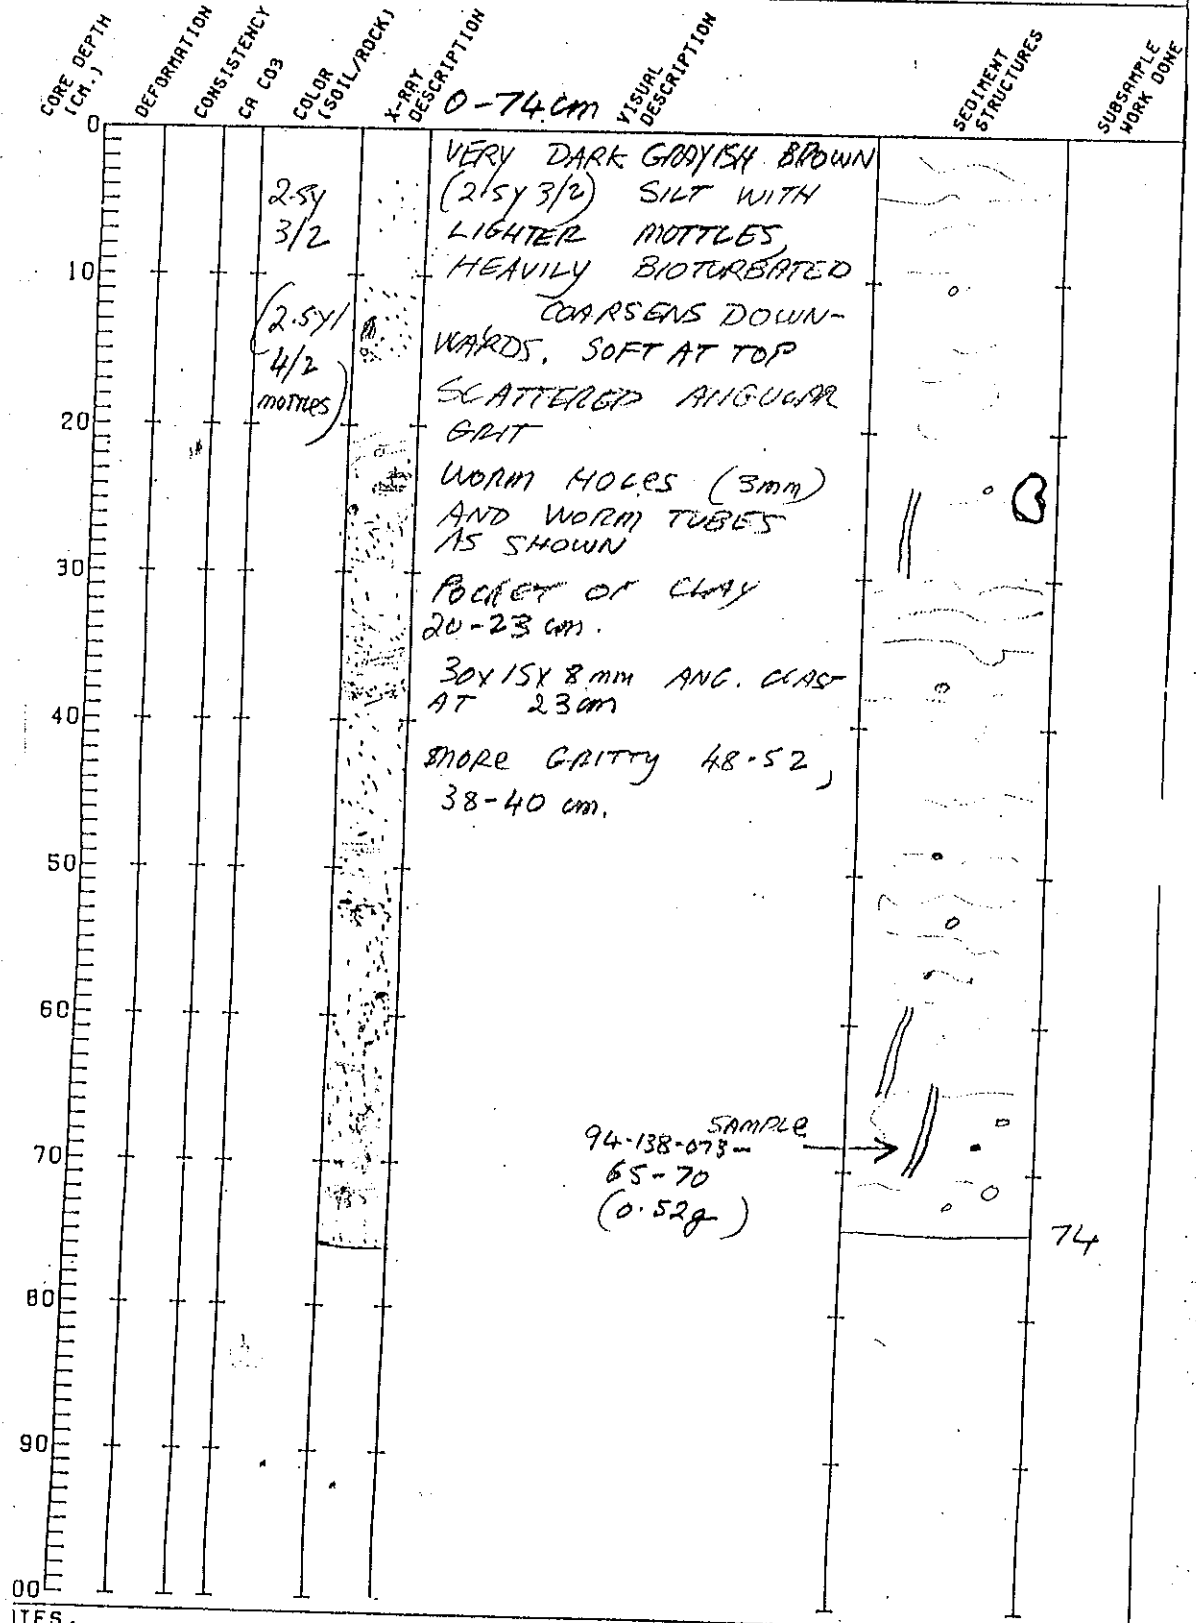 CORE DEPTH (CM.)
DEFORMATION
CONSISTENCY
CA CO3
COLOR (SOIL/ROCK)
X-RAY DESCRIPTION
VISUAL DESCRIPTION
SEDIMENT STRUCTURES
SUBSAMPLE WORK DONE
0-74 cm
0
VERY DARK GRAYISH BROWN
(2.5y 3/2) SILT WITH
LIGHTER MOTTLES,
HEAVILY BIOTURBATED
COARSENS DOWN-
WARDS. SOFT AT TOP
SCATTERED ANGULAR
GRIT
WORM HOLES (3mm)
AND WORM TUBES
AS SHOWN
POCKET OF CLAY
20-23 cm.
30x15x8 mm ANG. CLAST
AT 23cm
MORE GRITTY 48-52,
38-40 cm.
2.5y
3/2
(2.5y/
4/2
mottles)
10
20
30
40
50
60
70
80
90
00
SAMPLE
94-138-073-
65-70
(0.52g)
74